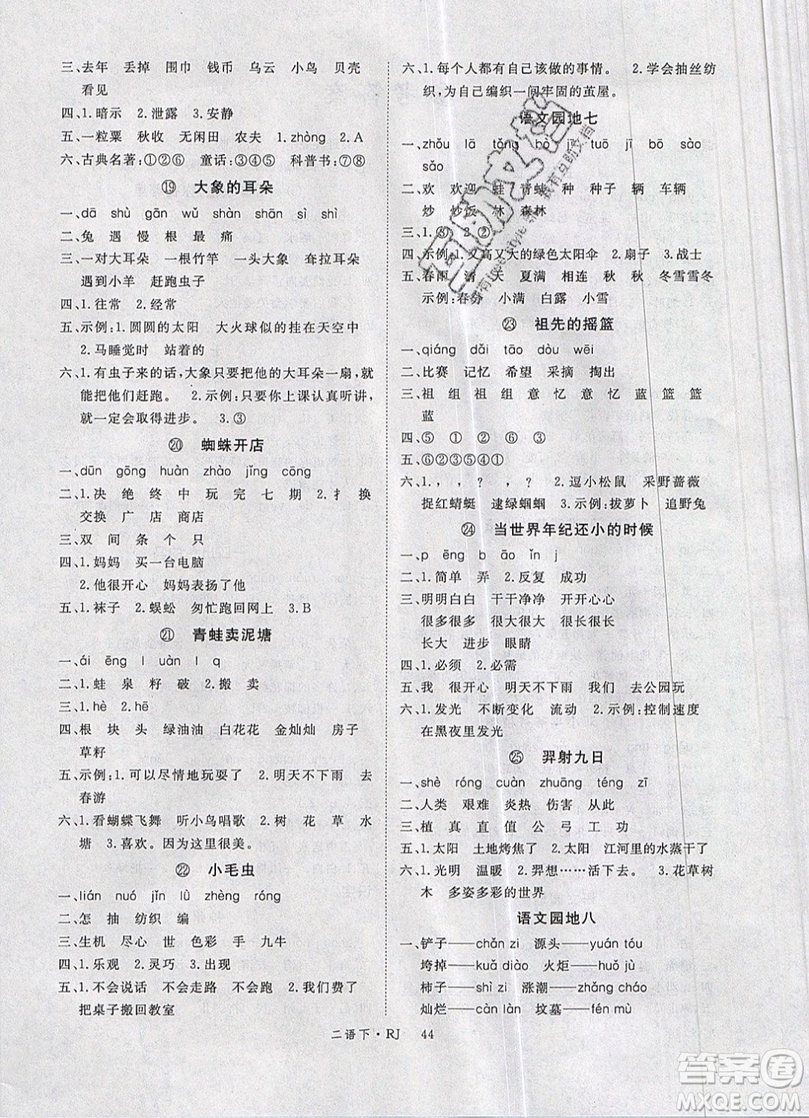 三、去年 丢掉 围巾 钱币 乌云 小鸟 贝壳
看见
四、1.暗示 2.泄露 3.安静
五、一粒粟 秋收 无闲田 农夫 1.zhòng 2.A
六、古典名著:①②⑥ 童话:③④⑤ 科普书:⑦⑧
⑲ 大象的耳朵
一、dā shù gān wǔ shàn shān sì shì
二、兔 遇 慢 根 最 痛
三、一对大耳朵 一根竹竿 一头大象 耷拉耳朵
遇到小羊 赶跑虫子
四、1.往常 2.经常
五、示例:1.圆圆的太阳 大火球似的挂在天空中
2.马睡觉时 站着的
六、1.有虫子来的话,大象只要把他的大耳朵一扇,就
能把它们赶跑。 2.示例:只要你上课认真听讲,
就一定会取得进步。 3.③
⑳ 蜘蛛开店
一、dūn gōng huàn zhào jǐng cōng
二、1.决 绝 终 中 玩 完 七 期 2.扌 换
交换 广 店 商店
三、双 间 条 个 只
四、1.妈妈 买一台电脑
2.他很开心 妈妈表扬了他
五、1.袜子 2.蜈蚣 匆忙跑回网上 3.B
㉑ 青蛙卖泥塘
一、ái ēng l uàn l q
二、1.蛙 泉 籽 破 2.搬 卖
三、1.hè 2.hē
四、根 块 头 绿油油 白花花 金灿灿 房子
草籽
五、示例:1.可以尽情地玩耍了 2.明天不下雨 去
春游
六、1.看蝴蝶飞舞 听小鸟唱歌 2.树 花 草 水
塘 3.喜欢。因为这里很美。
㉒ 小毛虫
一、lián nuó jǐn lǜ zhèng róng
二、怎 抽 纺织 编
三、生机 尽心 世 色彩 手 九牛
四、1.乐观 2.灵巧 3.出现
五、1.不会说话 不会走路 不会走路 2.我们费了
把桌子搬回教室
六、1.每个人都有自己该做的事情。 2.学会抽丝纺
织,为自己编织一间牢固的茧屋。
语文园地七
一、zhǒu lǒu wǔ sǎo
sǎo
二、欢 欢迎 蛙 青蛙 种 种子 辆 车辆
炒 炒饭 林 森林
四、示例:1.又高又大的绿色太阳伞 2.扇子 3.战士
五、春雨 清 夏满 相连 秋 秋 冬雪雪冬
示例:春分 小满 白露 小雪
㉓ 祖先的摇篮
一、qiáng dǎi tāo dòu lán
二、比赛 记忆 希望 采摘 掏出
三、祖 组 祖 组 意 忆 意 忆 蓝 篮 篮
蓝
四、⑤ ① ② ⑥
五、⑥①④②③⑤
六、1., , ? , ? 2.逗小松鼠 采野蔷薇
捉红蜻蜓 逮绿蝈蝈 3.示例:拔萝卜 追野兔
㉔ 当世界年纪还小的时候
一、p ēng b āo ǐn j
二、1.简单 弄 2.反复 成功
三、明明白白 干干净净 开开心心
很多很多 很大很大 很长很长
长大 进步 眼睛
四、1.必须 2.必需
五、我 很开心 明天不下雨 我们 去公园玩
六、1.发光 不断变化 流动 2.示例:控制速度
在黑夜里发光
㉕ 羿射九日
一、shè róng cuàn zhuāng téng zī
二、人类 艰难 炎热 伤害 从此
三、植 真 直 值 公 弓 工 功
五、1.太阳 土地烤焦了 2.太阳 江河里的水蒸干了
六、1.光明 温暖 2.羿想……活下去。 3.花草树
木 多姿多彩的世界
语文园地八
一、铲子——chǎn zi 源头——yuán tóu
垮掉——kuǎ diào 火炬——huǒ jù
柿子——shì zi 涨潮——zhǎng cháo
灿烂——càn làn 坟墓——fén mù
二语下·RJ 44
答案圈
MXQE.COM